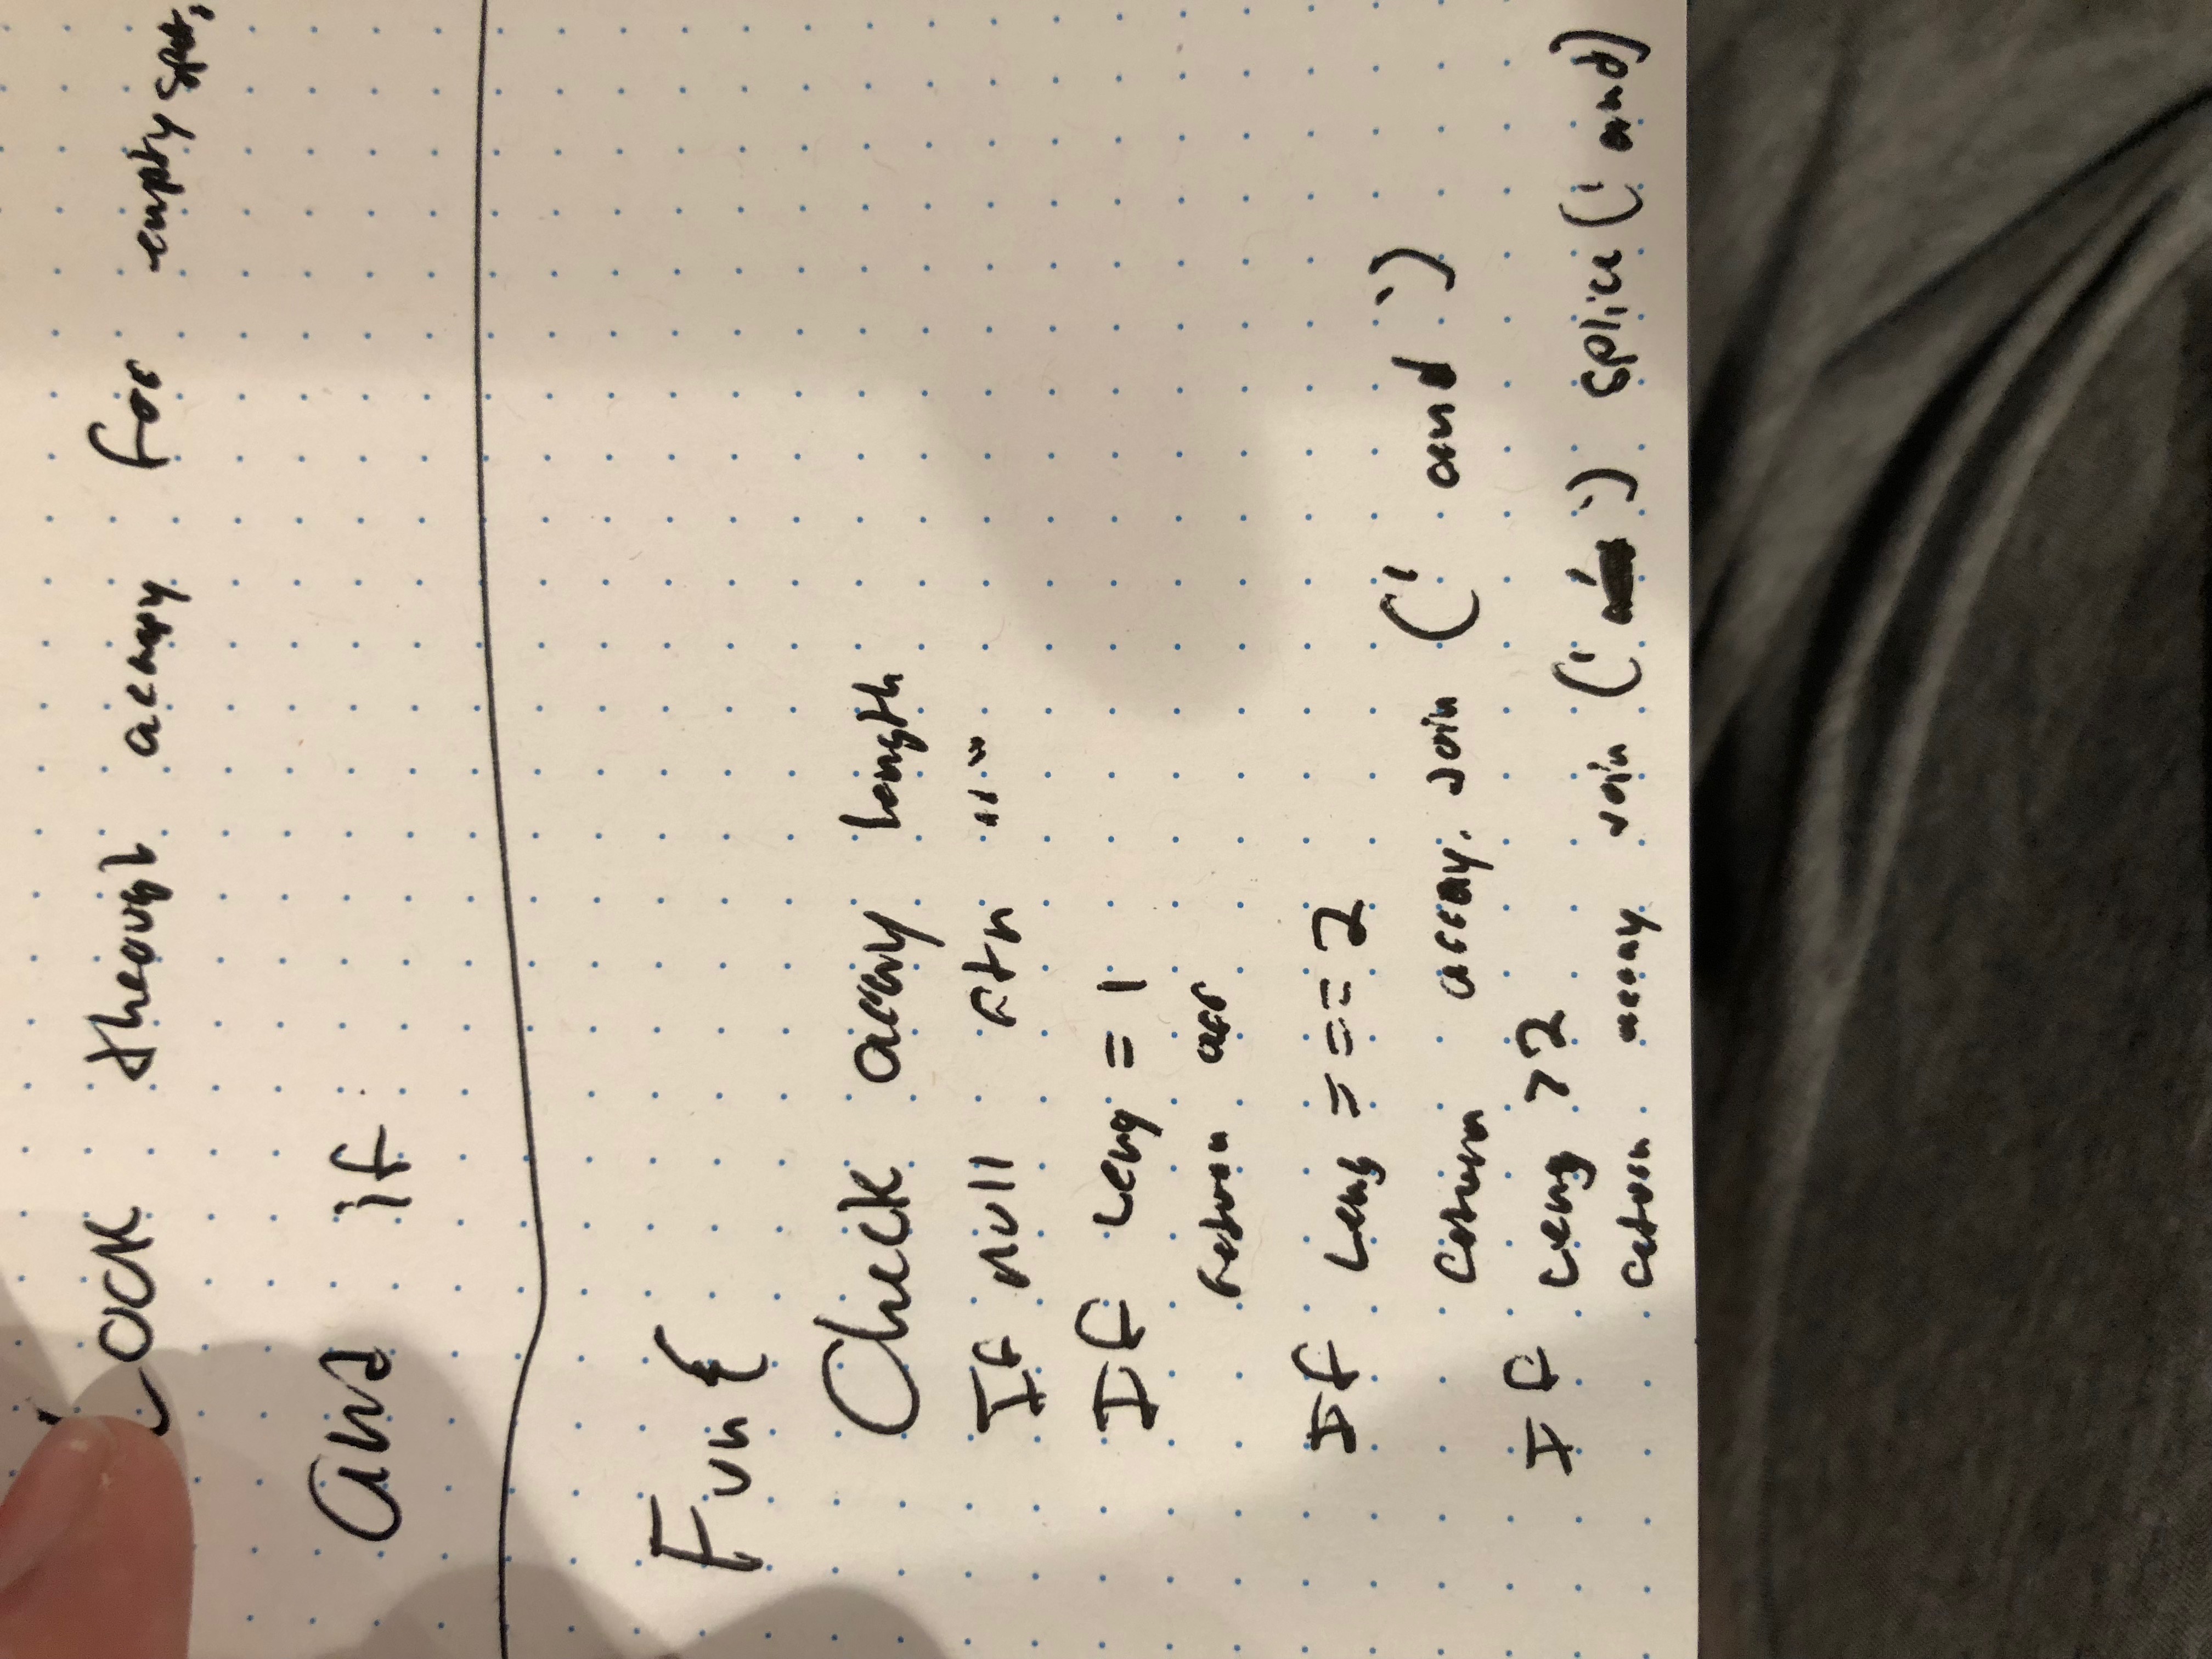 Look through array for empty spot,
and if
Fun {
Check array length
If null rtn ""
If Leng = 1
return arr
If Leng === 2
return array. Join (' and ')
If Leng >2
return array join (' , ') splice (' and)